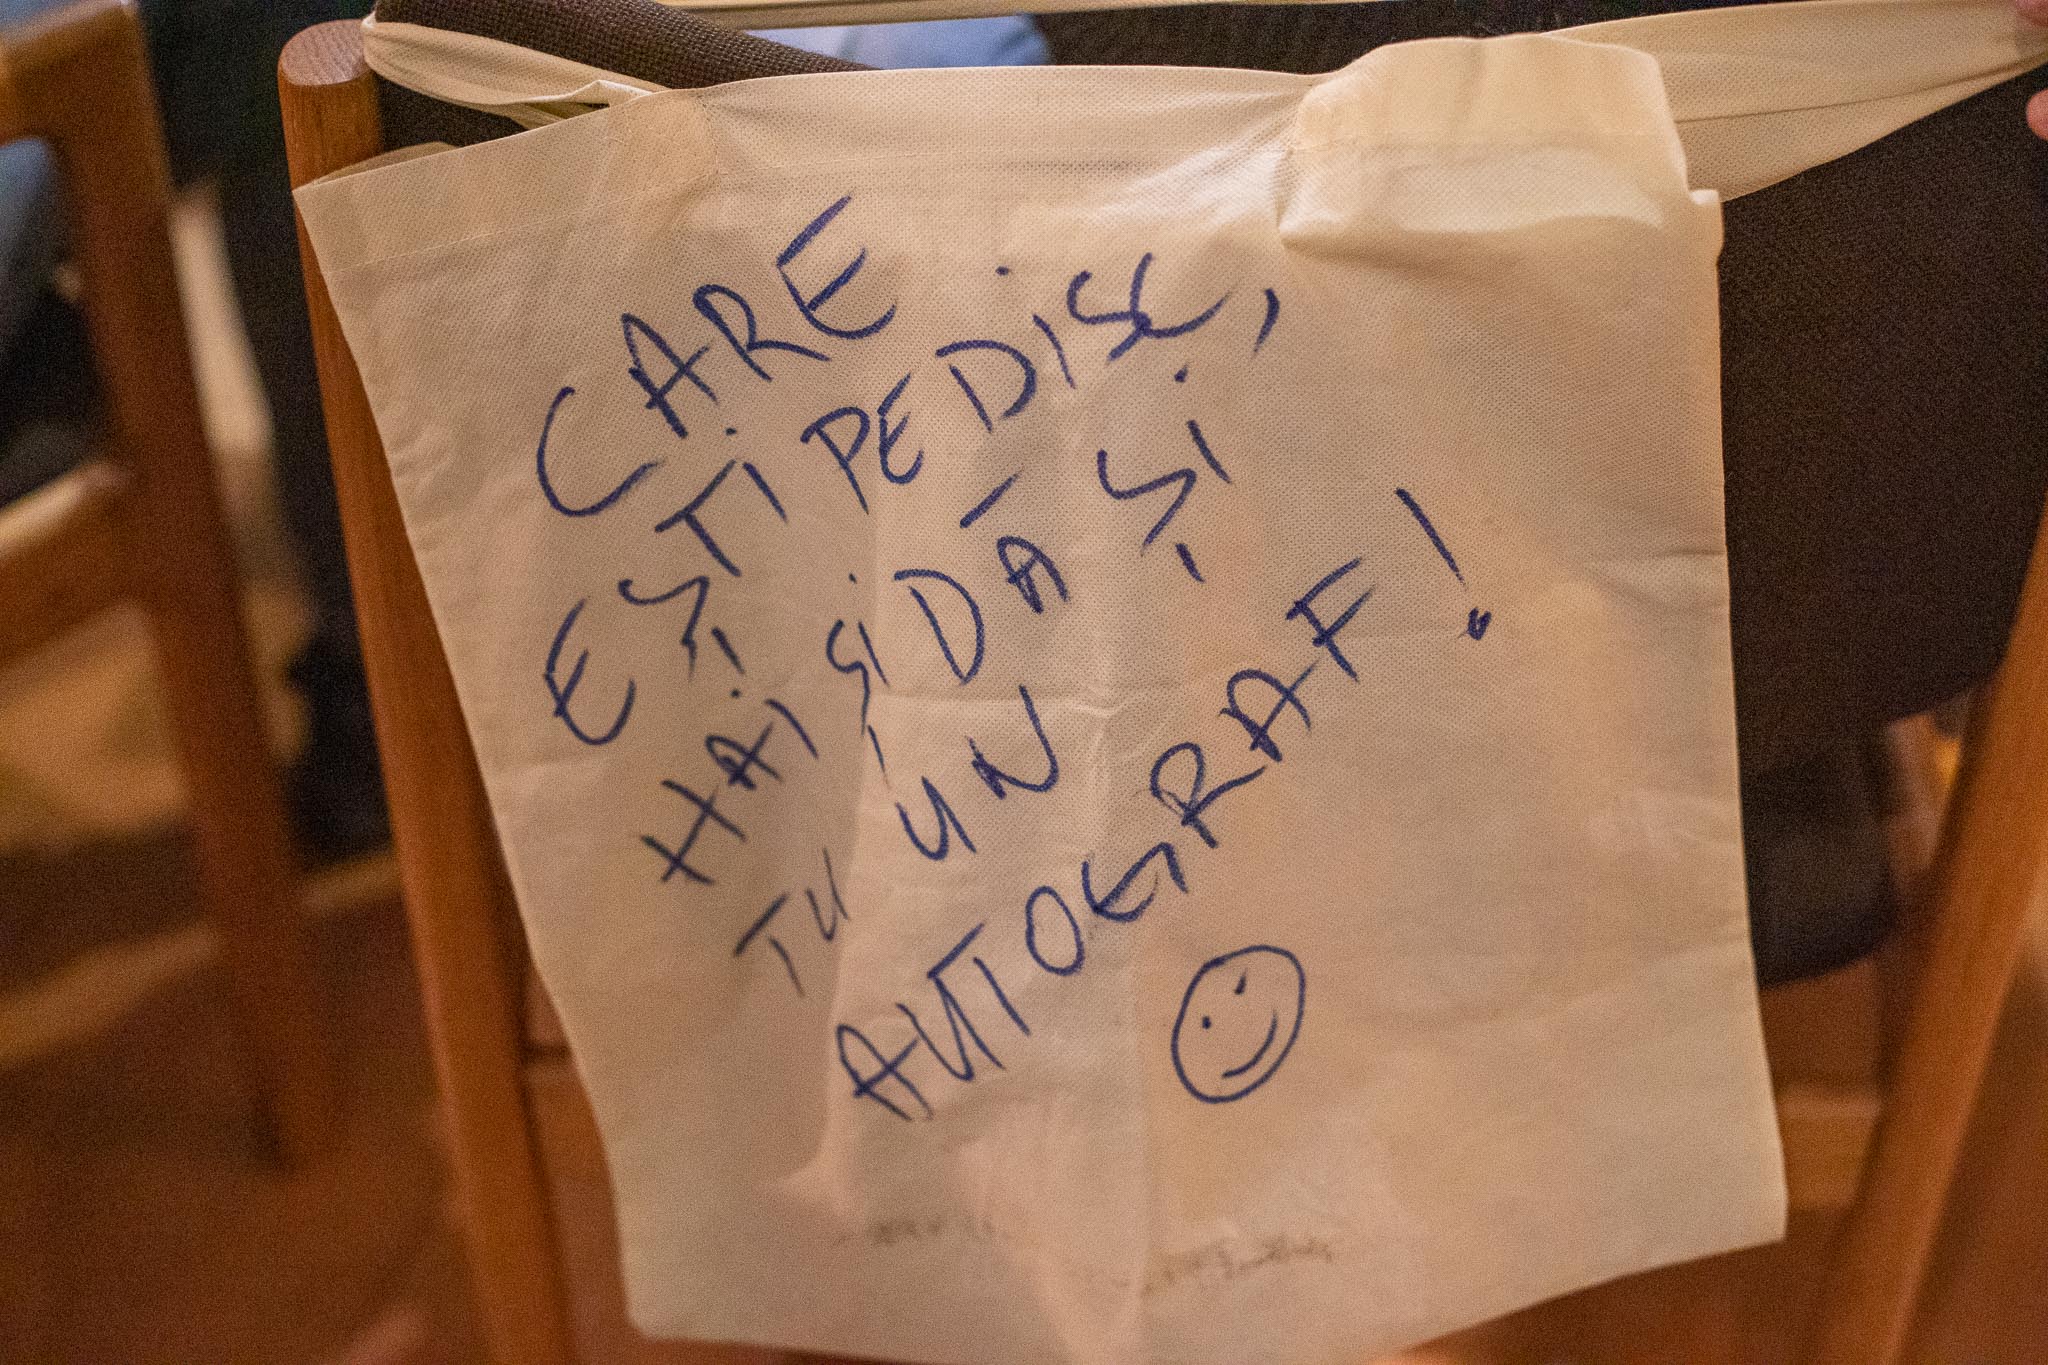 CARE
EȘTI PE DISC,
HAI ȘI DĂ ȘI
TU UN
AUTOGRAF!